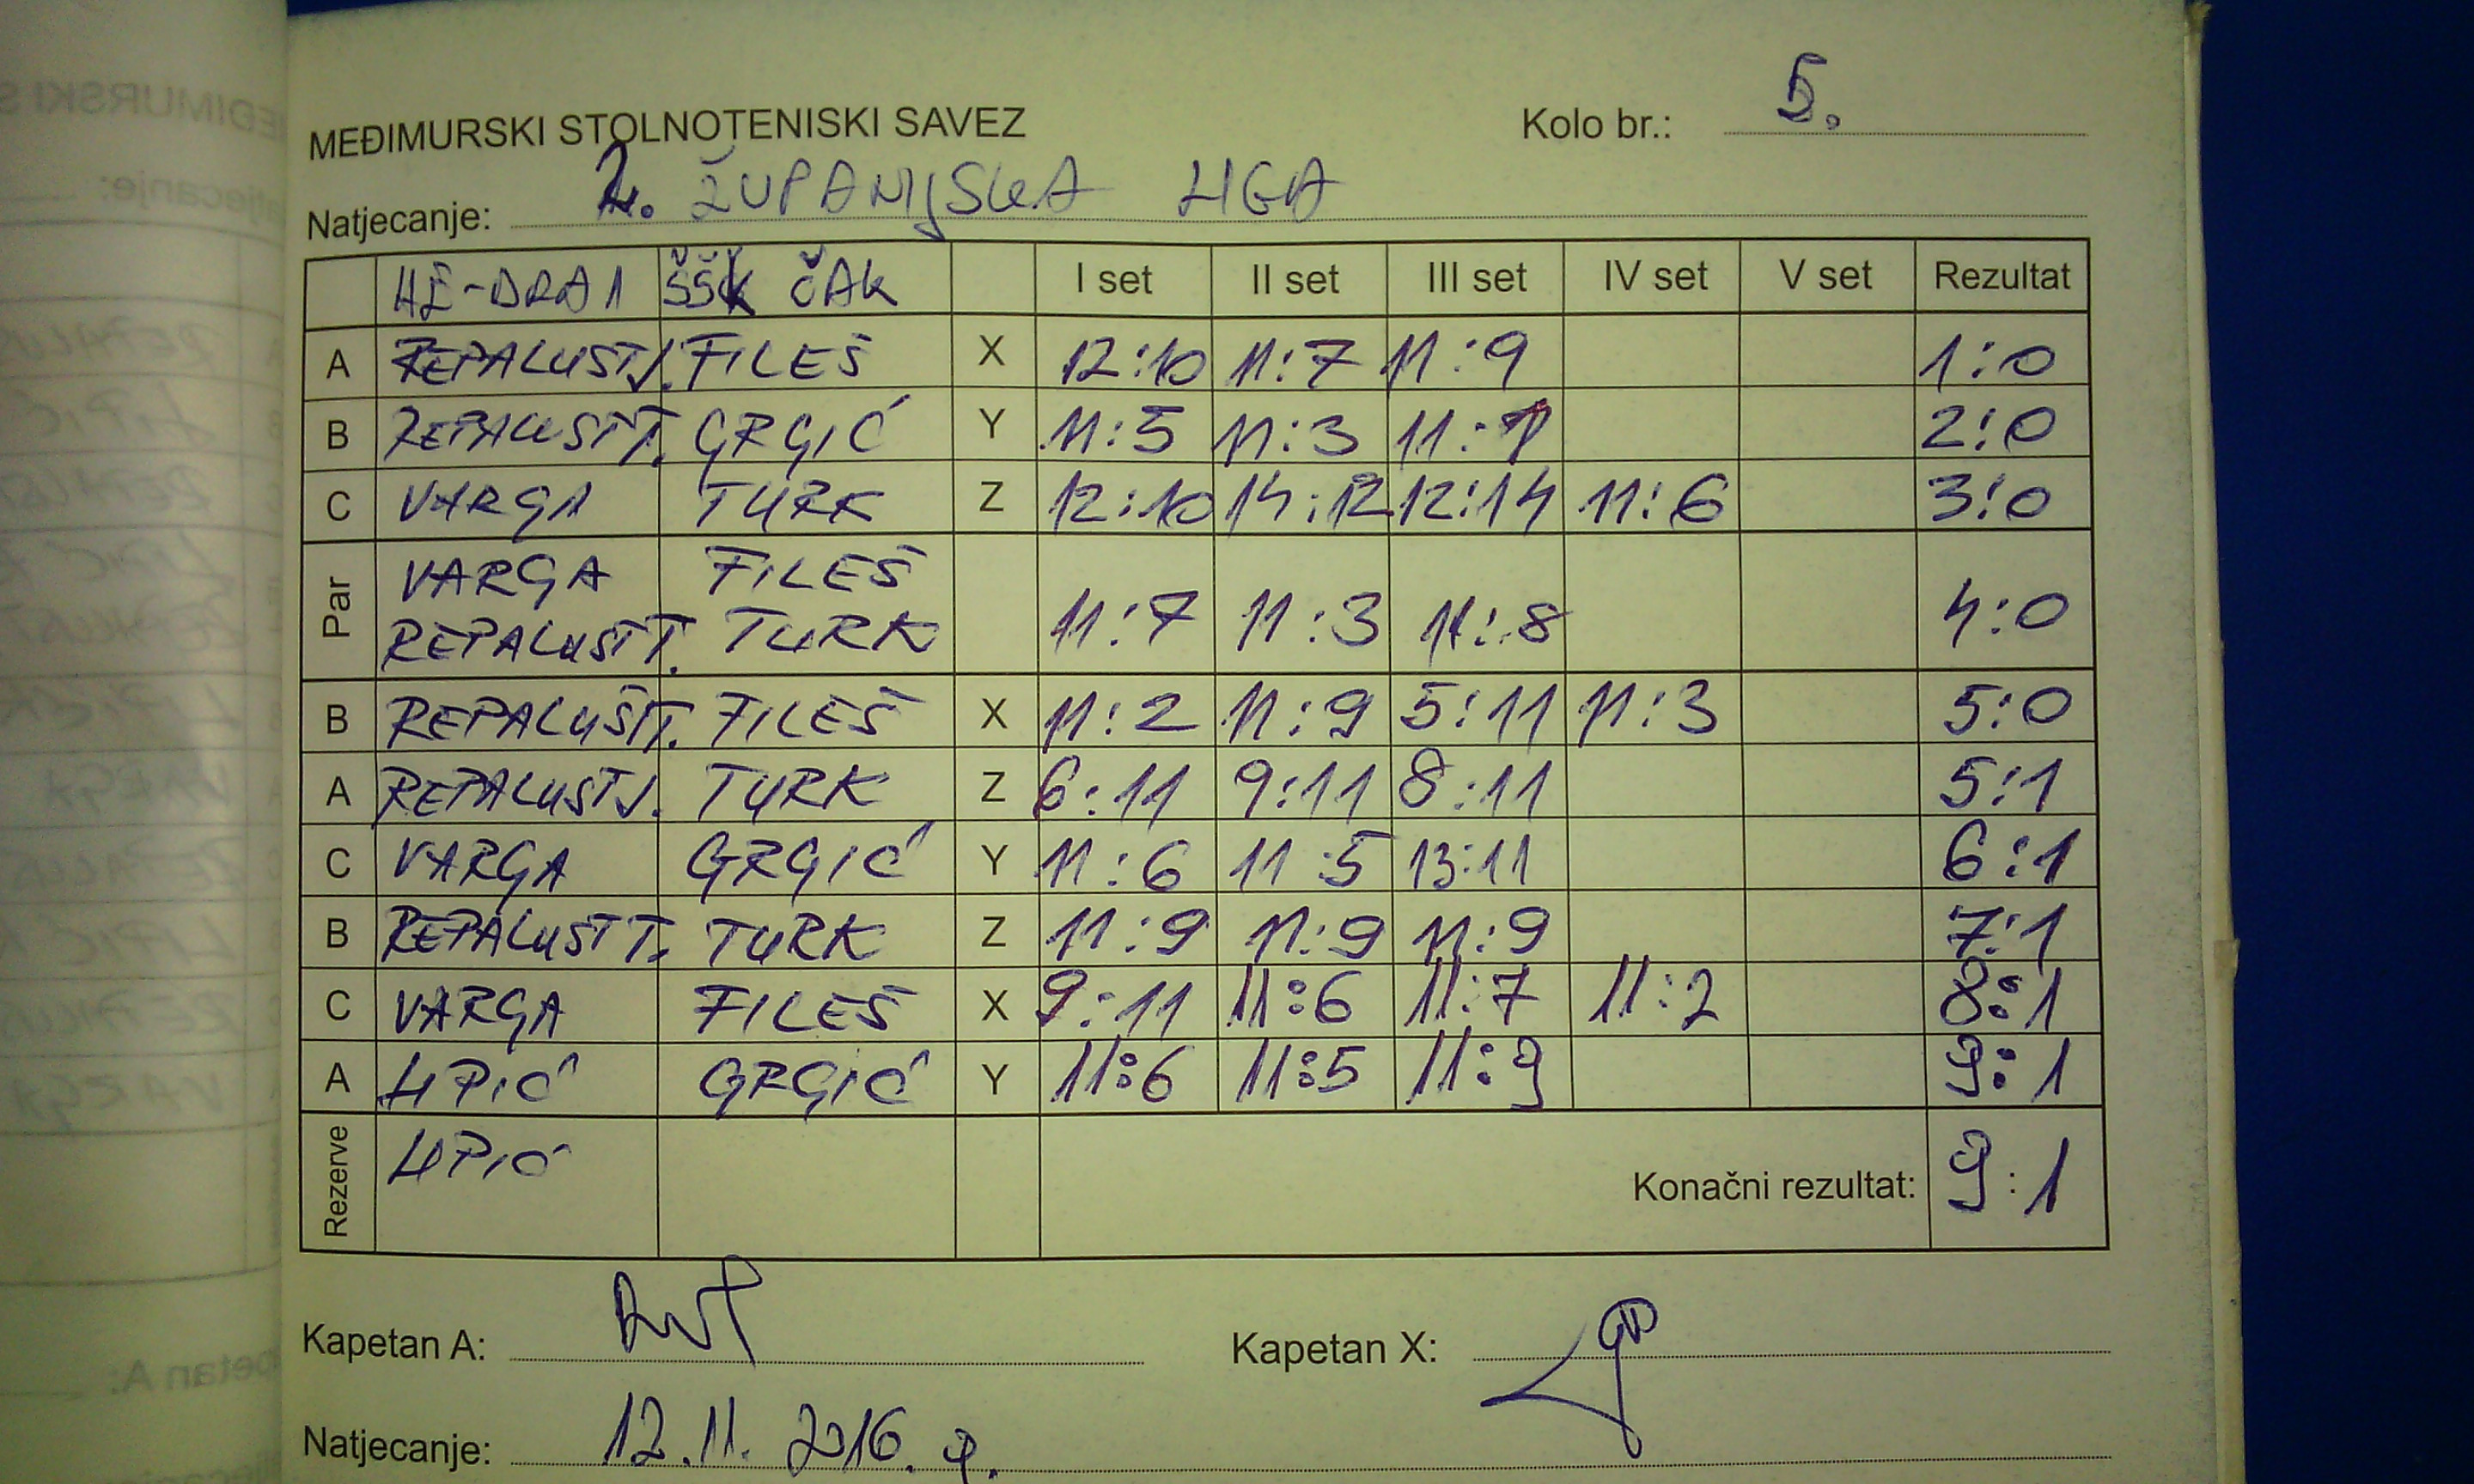 MEĐIMURSKI STOLNOTENISKI SAVEZ Kolo br.: 5.
Natjecanje: 2. ŽUPANIJSKA LIGA
HE-DRA 1 ŠŠK ČAK I set II set III set IV set V set Rezultat
A REPALUST J. FILEŠ X 12:10 11:7 11:9 1:0
B REPALUST T. GRGIĆ Y 11:5 11:3 2:0
C VARGA TURK Z 12:10 14:12 12:14 11:6 3:0
Par VARGA FILEŠ
REPALUST T. TURK 11:7 11:3 11:8 4:0
B REPALUŠT T. FILEŠ X 11:2 11:9 5:11 11:3 5:0
A REPALUST J. TURK Z 6:11 9:11 8:11 5:1
C VARGA GRGIĆ Y 11:6 11:5 13:11 6:1
B REPALUST T. TURK Z 11:9 11:9 11:9 7:1
C VARGA FILEŠ X 9:11 11:6 11:7 11:2 8:1
A LIPIĆ GRGIĆ Y 11:6 11:5 11:9 9:1
Rezerve LIPIĆ Konačni rezultat: 9:1
Kapetan A: Kapetan X:
Natjecanje: 12.11.2016.